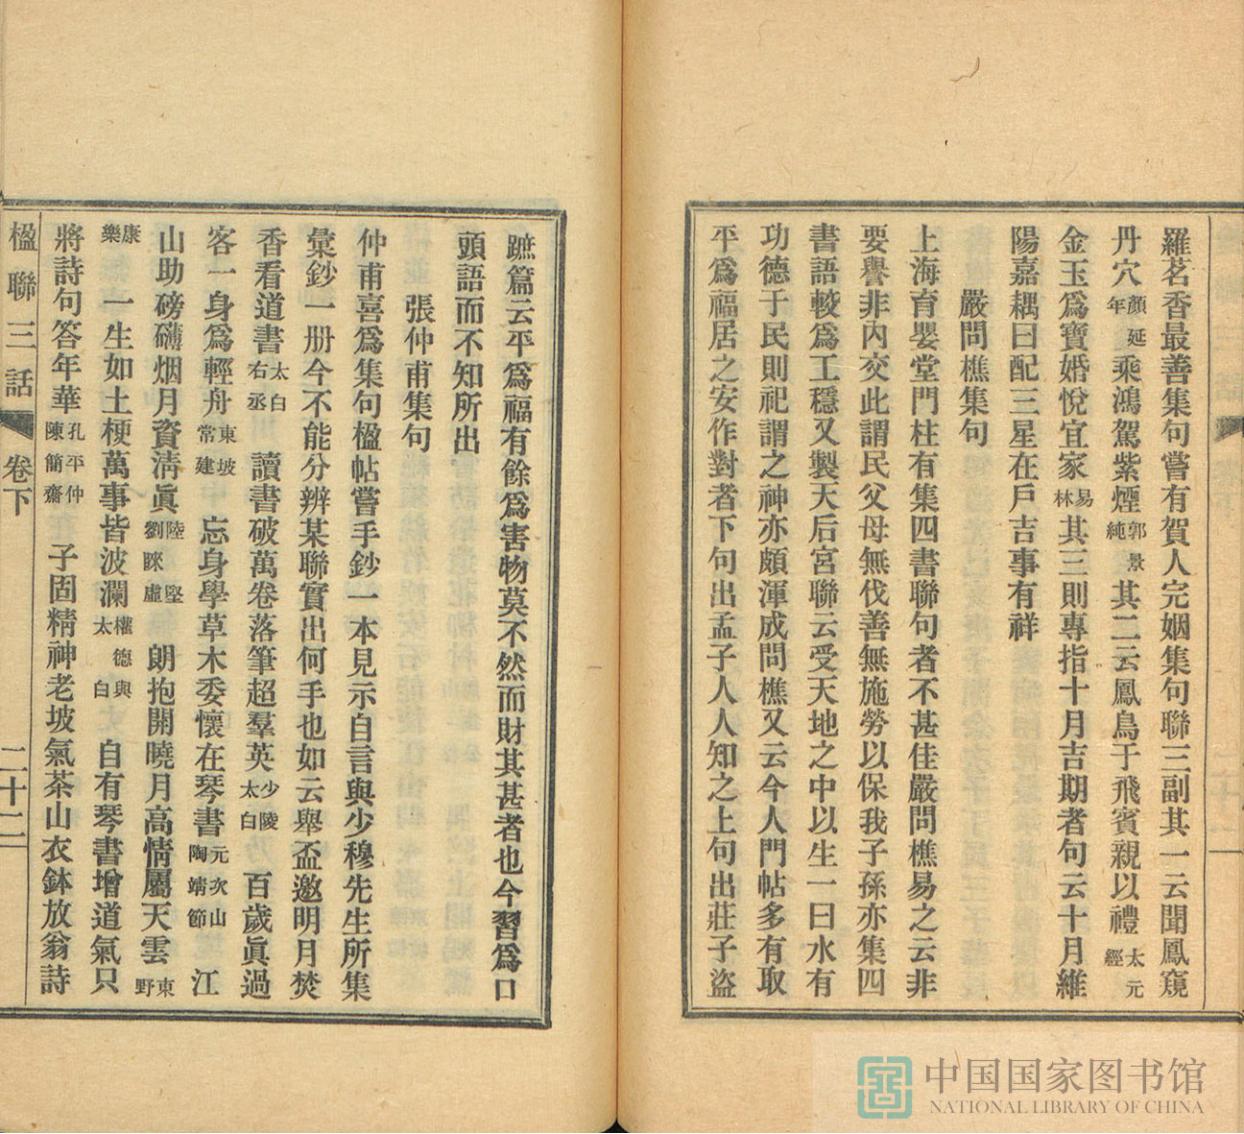 羅茗香最善集句嘗有賀人完姻集句聯三副其一云聞鳳窺
丹穴顏延年乘鴻駕紫煙郭景純其二云鳳鳥于飛賓親以禮太元經
金玉爲寶婚悅宜家易林其三則專指十月吉期者句云十月維
陽嘉耦曰配三星在戶吉事有祥
嚴問樵集句
上海育嬰堂門柱有集四書聯句者不甚佳嚴問樵易之云非
要譽非內交此謂民父母無伐善無施勞以保我子孫亦集四
書語較爲工穩又製天后宮聯云受天地之中以生一曰水有
功德于民則祀謂之神亦頗渾成問樵又云今人門帖多有取
平爲福居之安作對者下句出孟子人人知之上句出莊子盜
蹠篇云平爲福有餘爲害物莫不然而財其甚者也今習爲口
頭語而不知所出
張仲甫集句
仲甫喜爲集句楹帖嘗手鈔一本見示自言與少穆先生所集
彙鈔一册今不能分辨某聯實出何手也如云舉盃邀明月焚
香看道書太白右丞 讀書破萬卷落筆超羣英少陵太白 百歲眞過
客一身爲輕舟東坡常建 忘身學草木委懷在琴書元次山陶靖節 江
山助磅礴烟月資淸眞陸堅劉睞虛 朗抱開曉月高情屬天雲東野
康樂 一生如土梗萬事皆波瀾權德輿太白 自有琴書增道氣只
將詩句答年華孔平仲陳簡齋 子固精神老坡氣茶山衣鉢放翁詩
楹聯三話 卷下 二十二
中国国家图书馆
NATIONAL LIBRARY OF CHINA